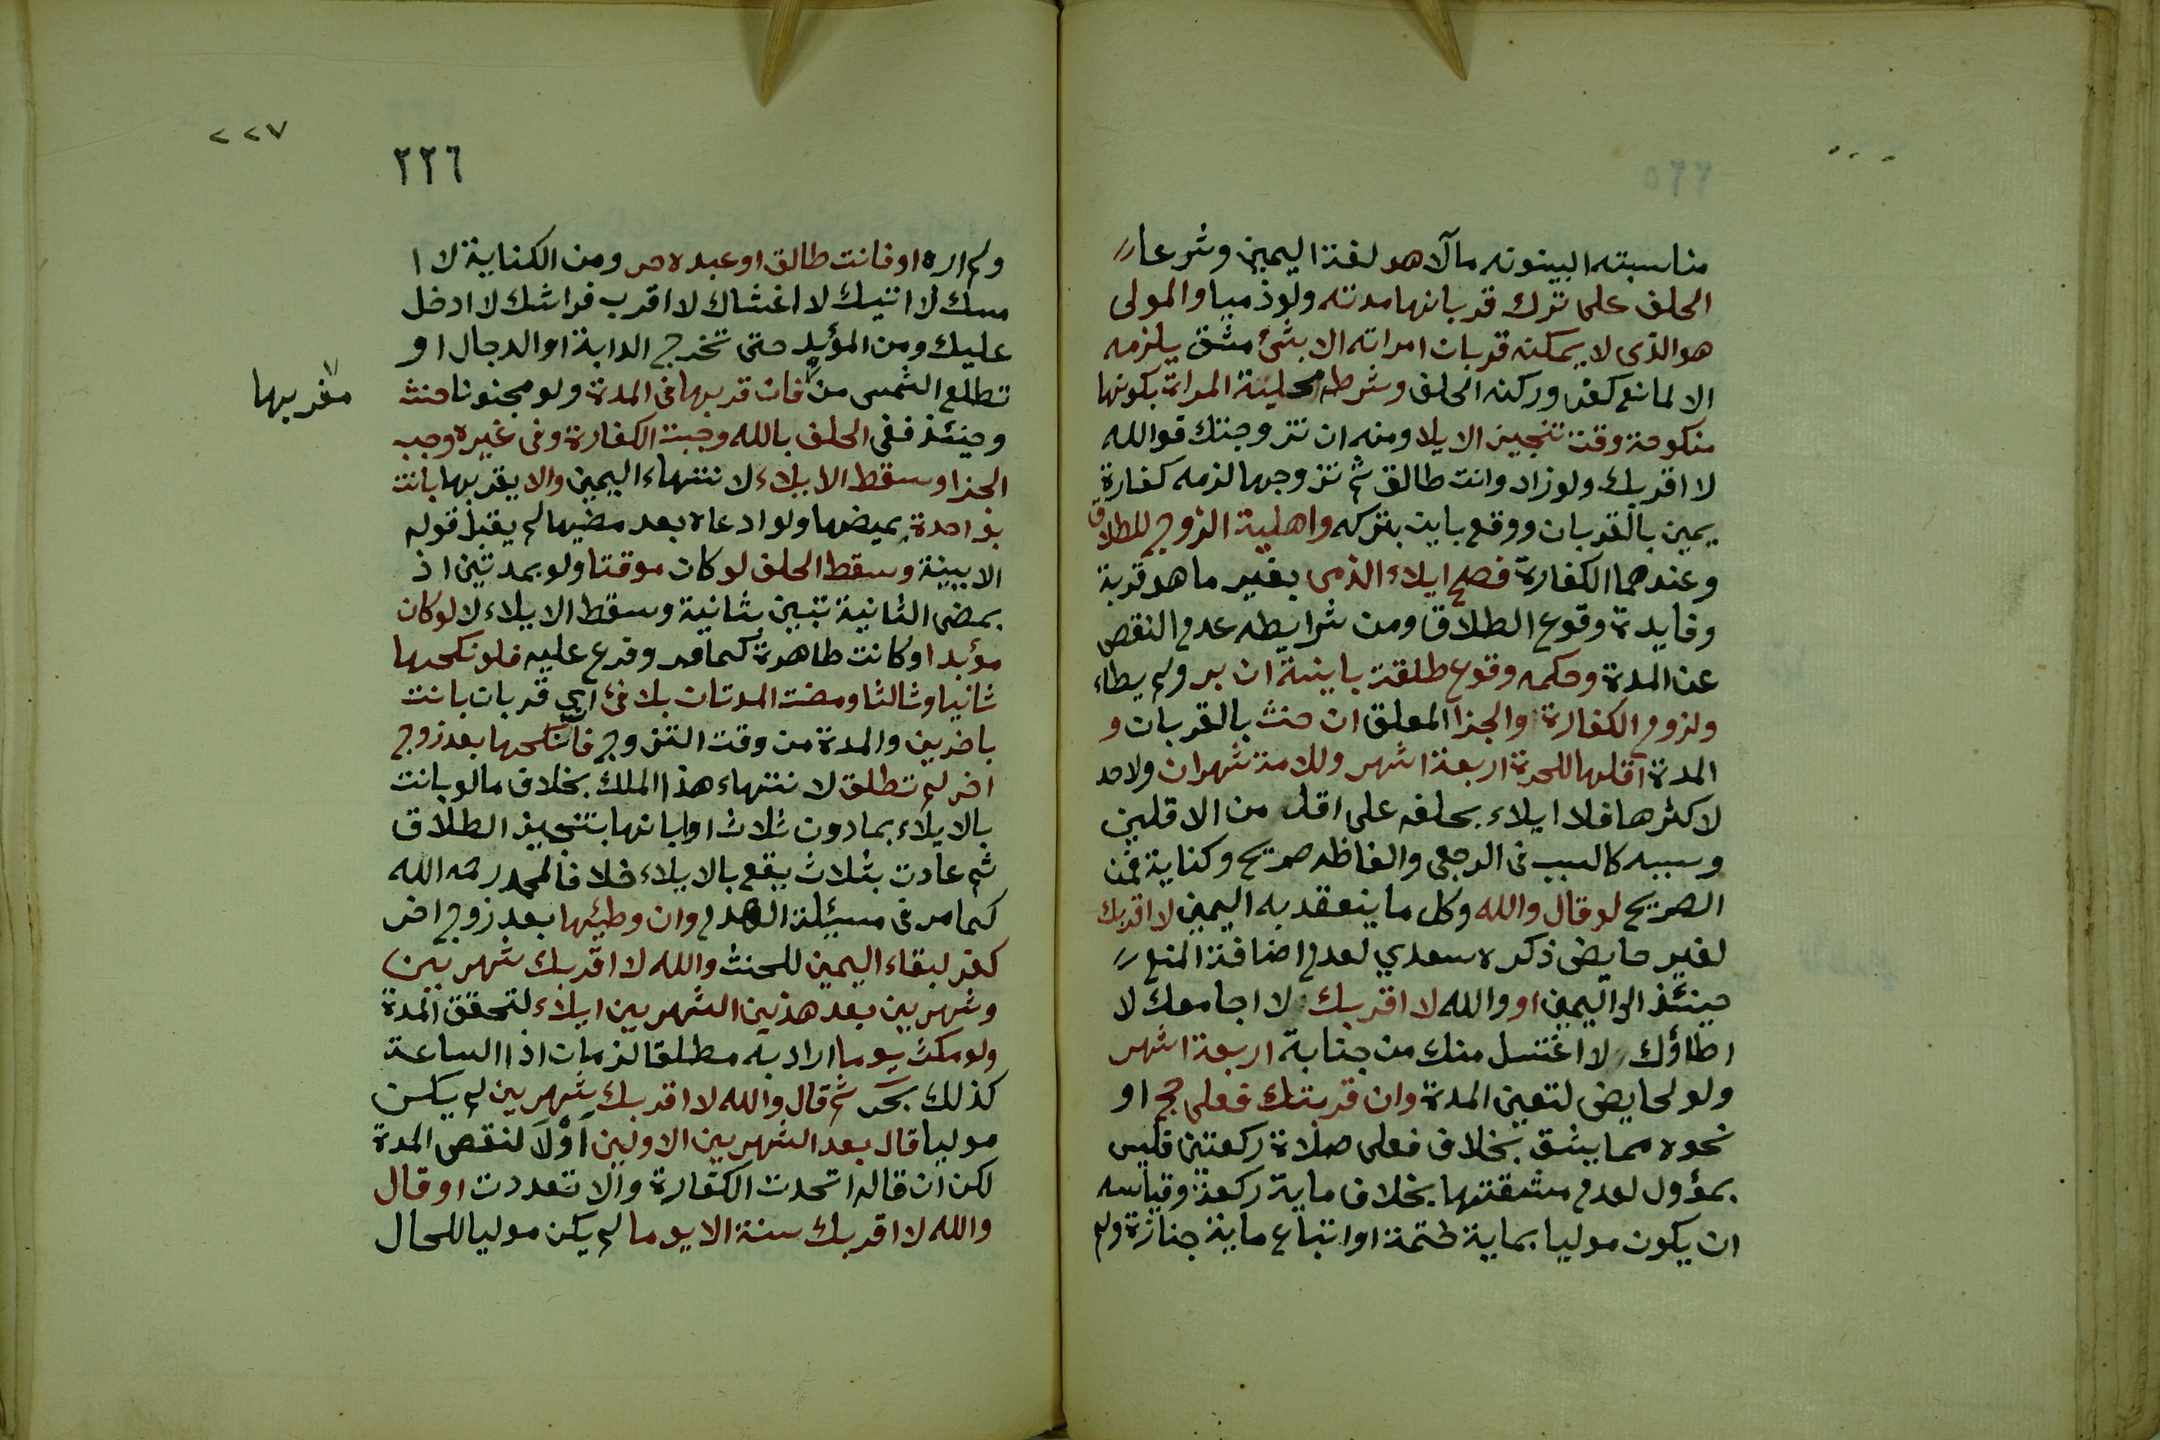 مناسبته البينونه مآلا هو لغة اليمين وشرعا
الحلف على ترك قربانها مدته ولو ذميا والمولى
هو الذى لا يمكنه قربان امراته الا بشئ مشق يلزمه
الا لمانع كفر وركنه الحلف وشرطه محلية المراة بكونها
منكوحة وقت تنجيز الايلا ومنه ان تزوجتك فوالله
لا اقربك ولو زاد وانت طالق ثم تزوجها لزمه كفارة
يمين بالقربان ووقع باين بتركه واهلية الزوج للطلاق
وعندهما الكفارة فصح ايلاء الذمى بغير ما هو قربة
وفايدة وقوع الطلاق ومن شرايطه عدم النقص
عن المدة وحكمه وقوع طلقة باينة ان بر ولم يطاء
ولزوم الكفارة والجزآ المعلق ان حنث بالقربان و
المدة آقلها للحرة اربعة اشهر وللامة شهران ولا حد
لاكثرها فلا ايلاء بحلفه على اقل من الاقلين
وسببه كالسبب فى الرجعى والفاظه صريح وكناية فمن
الصريح لو قال والله وكل ما ينعقد به اليمين لا اقربك
لغير حايض ذكره سعدي لعدم اضافة المنع
حينئذ الى اليمين او والله لا اقربك لا اجامعك لا
اطاؤك لا اغتسل منك من جنابة اربعة اشهر
ولو لحايض لتعين المدة وان قربتك فعلى حج او
نحوه مما يشق بخلاف فعلى صلاة ركعتين فليس
بمؤول لعدم مشقتها بخلاف ماية ركعة وقياسه
ان يكون موليا بماية ختمة او اتباع ماية جنازة ولم
٢٢٧
٢٢٦
ولم اره او فانت طالق او عبده حر ومن الكناية لا ا
مسك لا اتيك لا اغشاك لا اقرب فراشك لا ادخل
عليك ومن المؤبد حتى تخرج الدابة او الدجال او
تطلع الشمس من فان قربها فى المدة ولو مجنونا حنث
مغربها
وحينئذ ففى الحلف بالله وجبت الكفارة وفى غيره وجب
الجزا وسقط الايلاء لانتهاء اليمين والا يقربها بانت
بواحدة بميضها ولو ادعاه بعد مضيها لم يقبل قوله
الا ببينة وسقط الحلف لو كان موقتا ولو بمدتين اذ
بمضى الثانية تبين بثانية وسقط الايلاء لا لو كان
مؤبدا وكانت طاهرة كما مر وفرع عليه فلو نكحها
ثانيا وثالثا ومضت المدتان بلا فئ اي قربان بانت
باخريين والمدة من وقت التزوج فان نكحها بعد زوج
اخر لم تطلق لانتهاء هذا الملك بخلاف ما لو بانت
بالايلاء بما دون ثلاث او ابانها بتنجيز الطلاق
ثم عادت بثلاث يقع بالايلاء خلافا لمحمد رحمه الله
كما مر فى مسئلة الهدم وان وطئها بعد زوج اخر
كفر لبقاء اليمين للحنث والله لا اقربك شهرين
وشهرين بعد هذين الشهرين ايلاء لتحقق المدة
ولو مكث يوما اراد به مطلق الزمان اذ الساعة
كذلك بحر ثم قال والله لا اقربك شهرين لم يكن
موليا قال بعد الشهرين الاولين اولا لنقص المدة
لكن ان قاله اتحدت الكفارة والا تعددت او قال
والله لا اقربك سنة الا يوما لم يكن موليا للحال